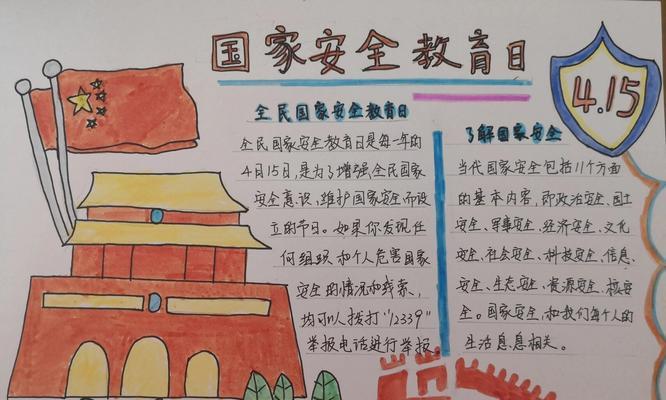 国家安全教育日
4.15
全民国家安全教育日
全民国家安全教育日是每一年的
4月15日,是为了增强全民国家
安全意识,维护国家安全而设
立的节日。如果你发现任
何组织和个人危害国家
安全的情况和线索,
均可以拨打"12339"
举报电话进行举报。
了解国家安全
当代国家安全包括11个方面
的基本内容,即政治安全、国土
安全、军事安全、经济安全、文化
安全、社会安全、科技安全、信息
安全、生态安全、资源安全、核安
全。国家安全,和我们每个人的
生活息息相关。